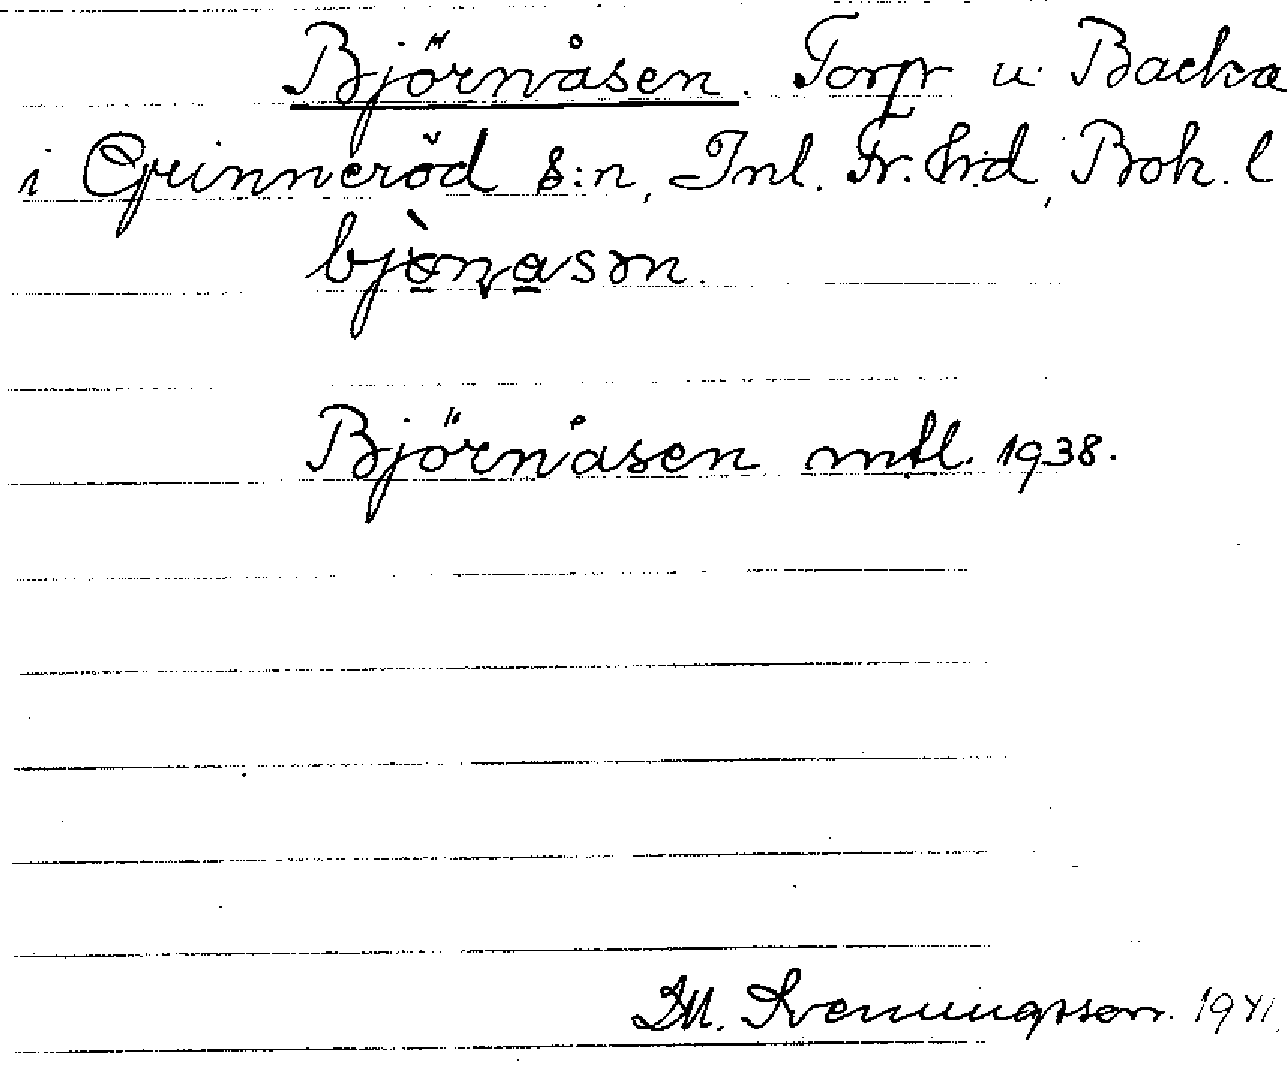 Björnåsen. Torp u. Backa
i Grinneröd s:n, Inl. Fr. hrd, Boh. l
Björnåsen mtl. 1938.
M. Svenningsson. 1941.